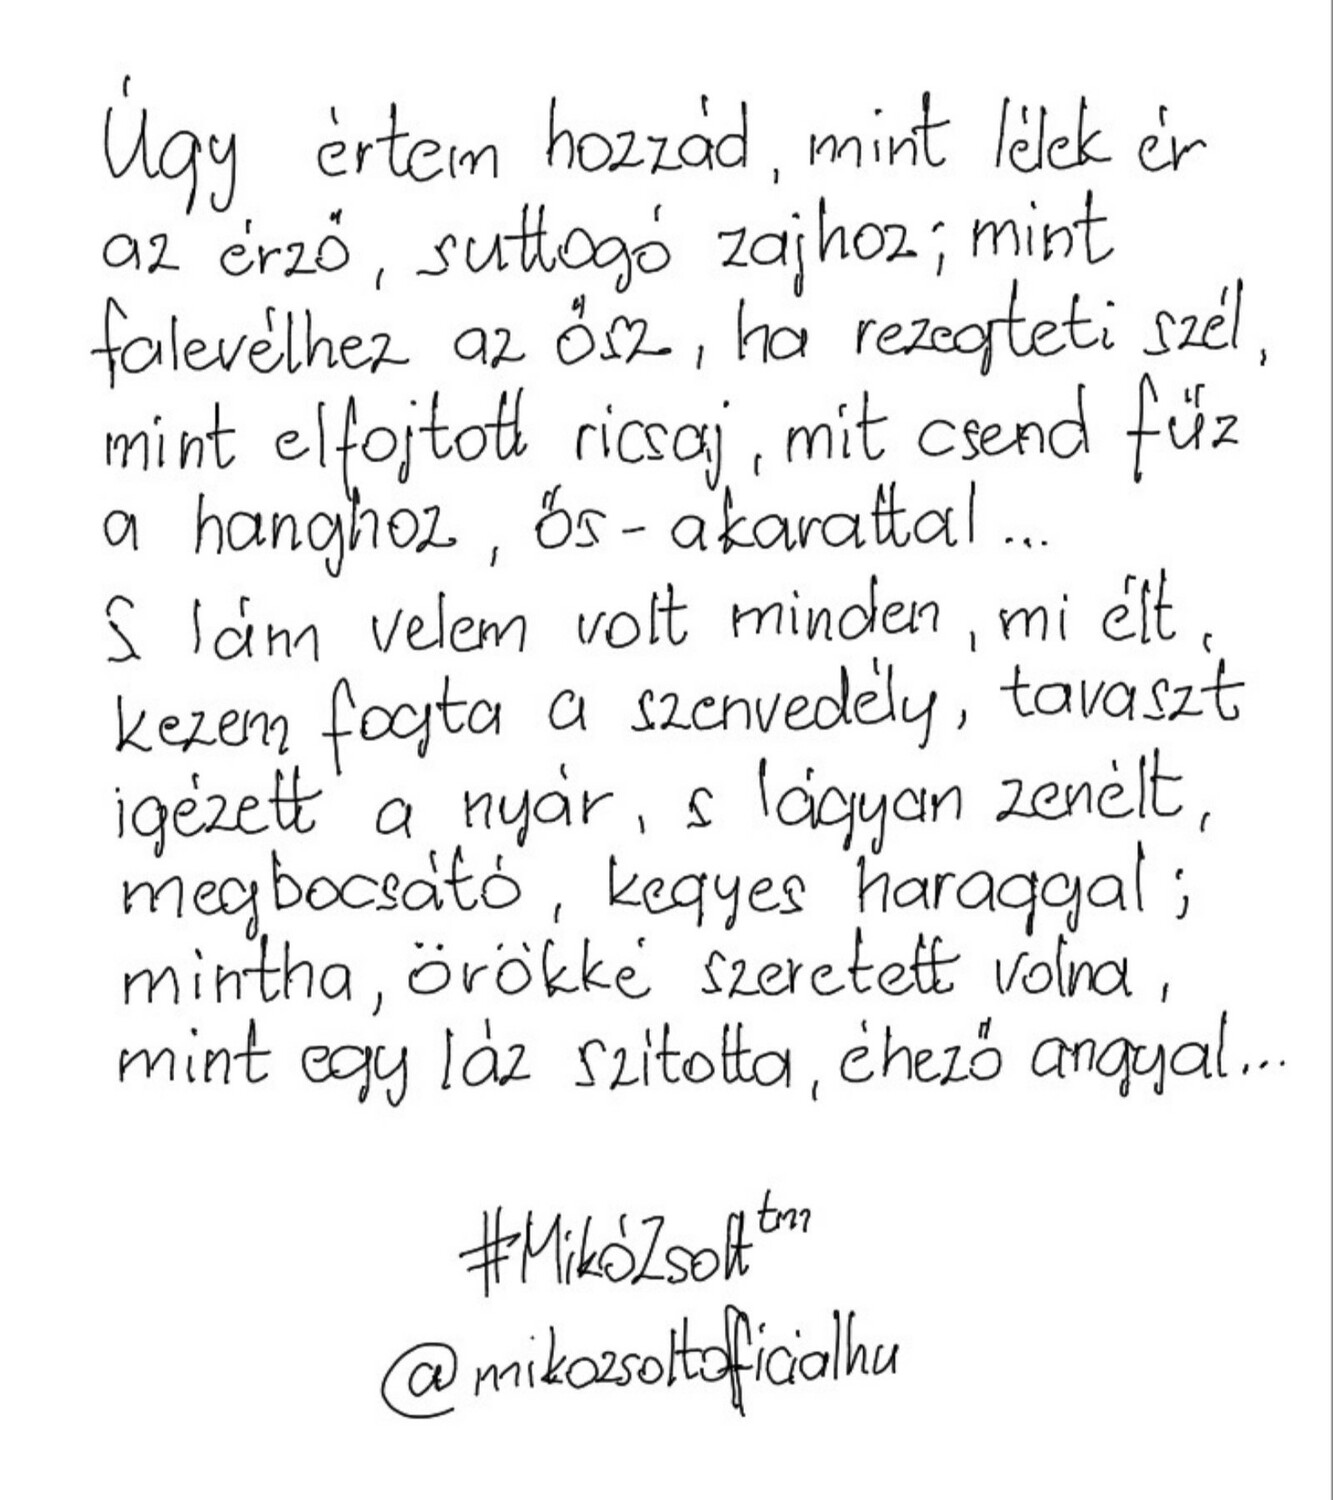 Úgy értem hozzád, mint lélek ér
az érző, suttogó zajhoz; mint
falevélhez az ősz, ha rezegteti szél,
mint elfojtott ricsaj, mit csend fűz
a hanghoz, ős-akarattal...
S lám velem volt minden, mi élt,
kezem fogta a szenvedély, tavaszt
igézett a nyár, s lágyan zenélt,
megbocsátó, kegyes haraggal;
mintha, örökké szeretett volna,
mint egy láz szította, éhező angyal...
#MikóZsolt™
@mikozsoltoficialhu